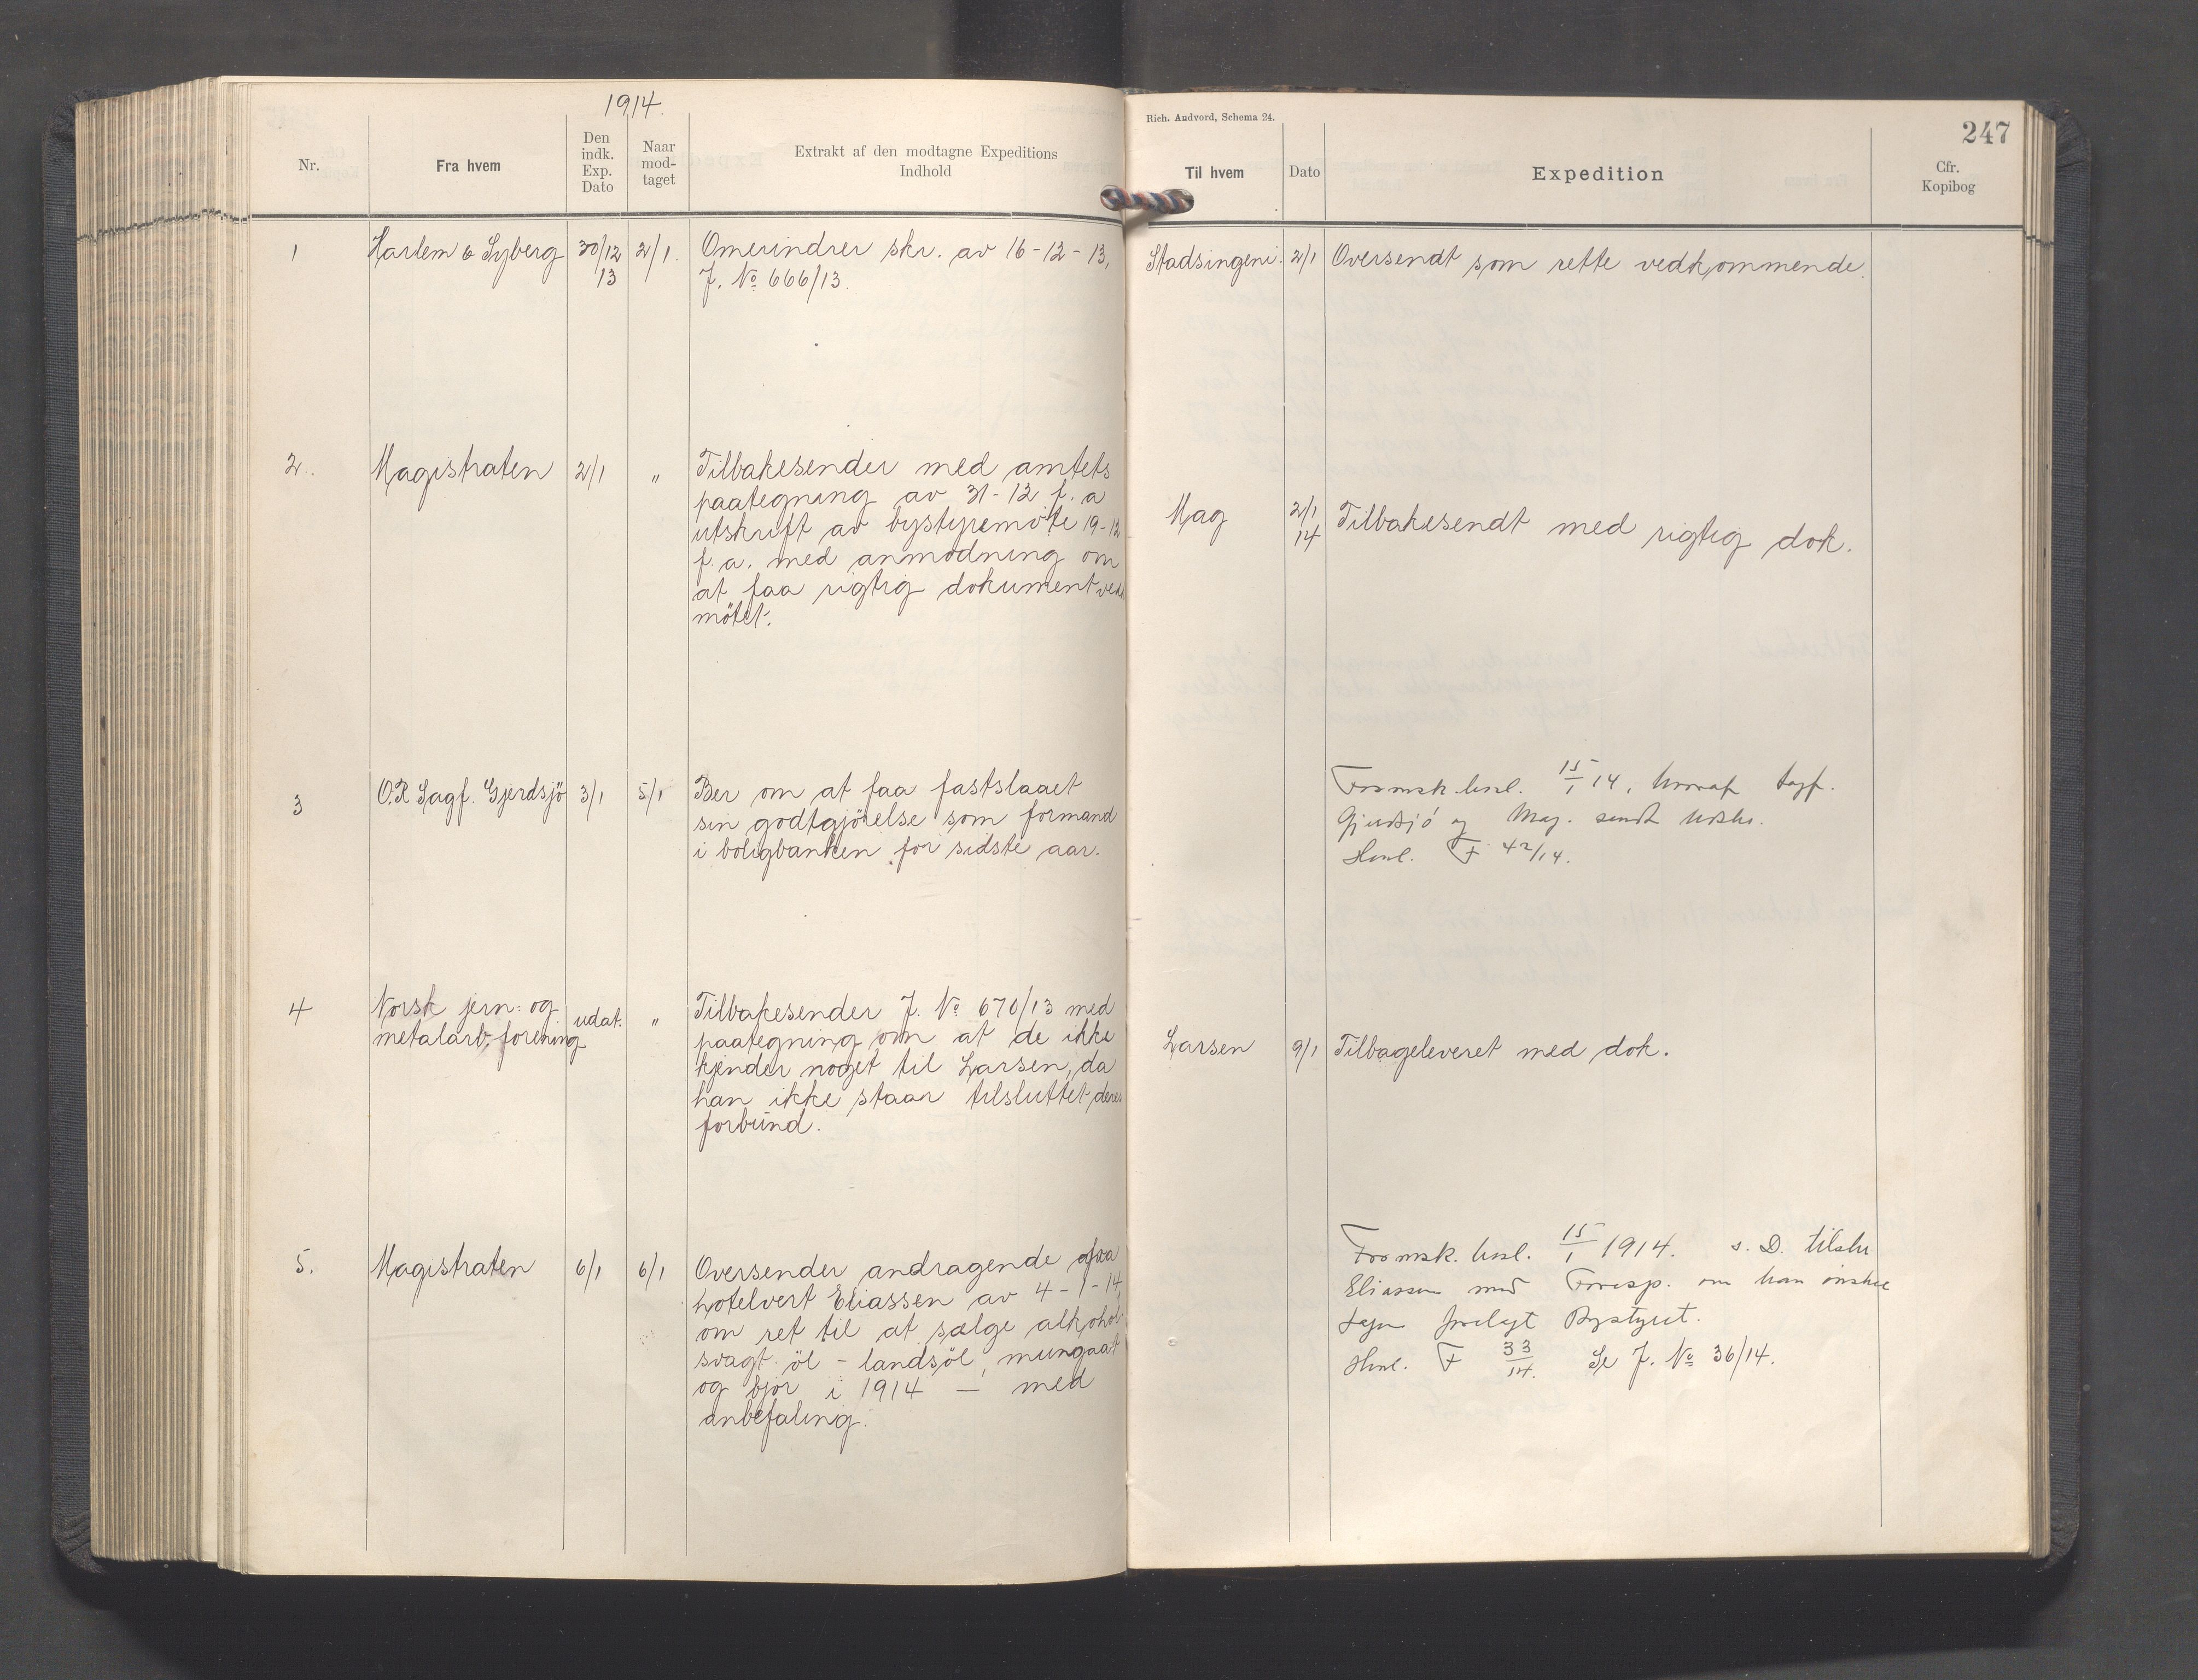 1914.
Nr.
Fra hvem
Den
indk.
Exp.
Dato
Naar
mod-
taget
Extrakt af den modtagne Expeditions
Indhold
1
Harlem & Syberg
30/12
13
2/1.
Omerindrer skr. av 16-12-13,
J. No 666/13.
2.
Magistraten
2/1
"
Tilbakesender med amtets
paategning av 31-12 f. a
utskrift av bystyremöte 19-12
f. a. med anmodning om
at faa rigtig dokument ved
mötet.
3
O.R Sagf. Gjerdsjö
3/1
5/1
Ber om at faa fastslaaet
sin godtgjörelse som formand
i boligbanken for sidste aar.
4
Norsk jern- og
metalarb. forening
udat.
"
Tilbakesender J. No 670/13 med
paategning om at de ikke
kjender noget til Larsen, da
han ikke staar tilsluttet deres
forbund.
5.
Magistraten
6/1
6/1
Oversender andragende fra
hotelvert Eliassen av 4-1-14,
om ret til at sælge alkohol-
svagt öl - landsöl, mungaat
og bjor i 1914 — med
anbefaling.
Rich. Andvord, Schema 24.
247
Til hvem
Dato
Expedition
Cfr.
Kopibog
Stadsingeni.
2/1
Oversendt som rette vedkommende.
Mag
2/1
14
Tilbakesendt med rigtig dok.
Formsk. besl. 15/1 14, hvoraf
Gjerdsjö og Mag. sendt Udskr.
Henl. F 42/14.
Larsen
9/1
Tilbageleveret med dok.
Formsk. besl. 15/1 1914. s. D. tilskr
Eliassen med Foresp. om han ønsker
Sagen forelagt Bystyret.
Henl. F 33/14. Se J. No 36/14.